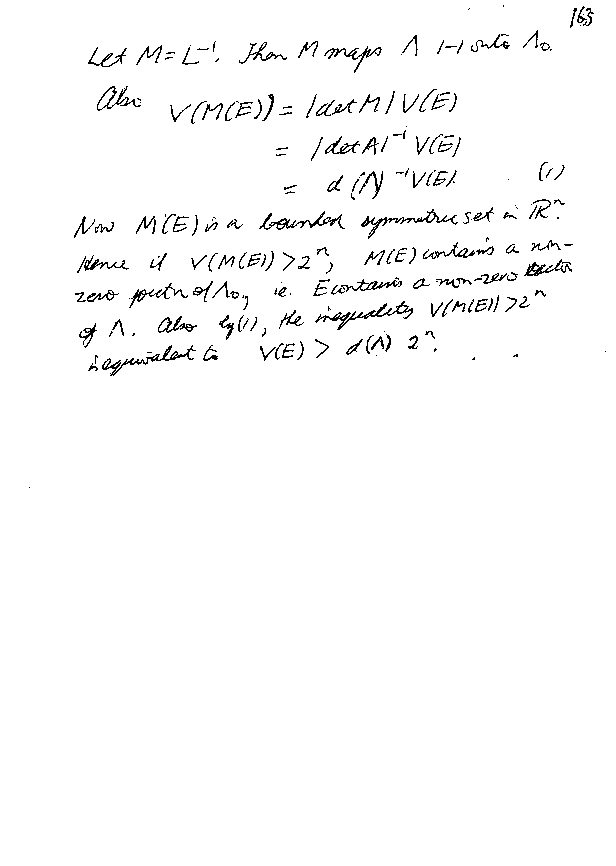 163
Let M = L⁻¹. Then M maps Λ 1-1 onto Λ₀.
Also V(M(E)) = |det M| V(E)
= |det A|⁻¹ V(E)
= d(Λ)⁻¹ V(E). (1)
Now M(E) is a bounded symmetric set in ℝⁿ.
Hence if V(M(E)) > 2ⁿ, M(E) contains a non-
zero point of Λ₀, ie. E contains a non-zero vector
of Λ. Also by (1), the inequality V(M(E)) > 2ⁿ
is equivalent to V(E) > d(Λ) 2ⁿ.